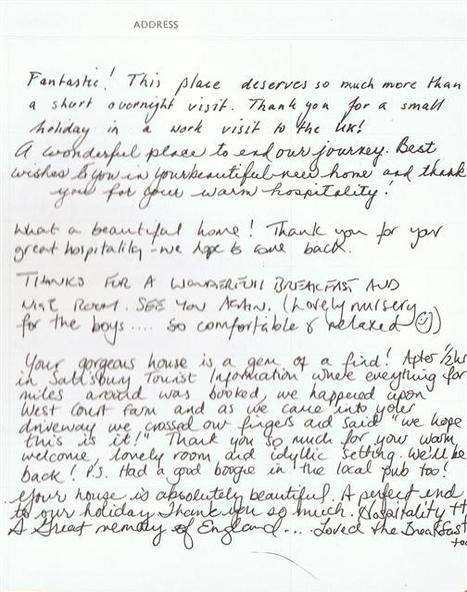 ADDRESS
Fantastic! This place deserves so much more than
a short overnight visit. Thank you for a small
holiday in a work visit to the UK!
A wonderful place to end our journey. Best
wishes to you in your beautiful new home and thank
you for your warm hospitality!
What a beautiful home! Thank you for your
great hospitality - we hope to come back.
THANKS FOR A WONDERFUL BREAKFAST AND
NICE ROOM. SEE YOU AGAIN. (Lovely nursery
for the boys .... so comfortable & relaxed ☺))
Your gorgeous house is a gem of a find! After 1/2 hr
in Salisbury Tourist Information where everything for
miles around was booked, we happened upon
West Court Farm and as we came into your
driveway we crossed our fingers and said "we hope
this is it!" Thank you so much for your warm
welcome, lovely room and idyllic setting. We'll be
back! P.S. Had a good boogie in the local pub too!
Your house is absolutely beautiful. A perfect end
to our holiday. Thank you so much. Hospitality
A Great memory of England.... Loved the Breakfast
too